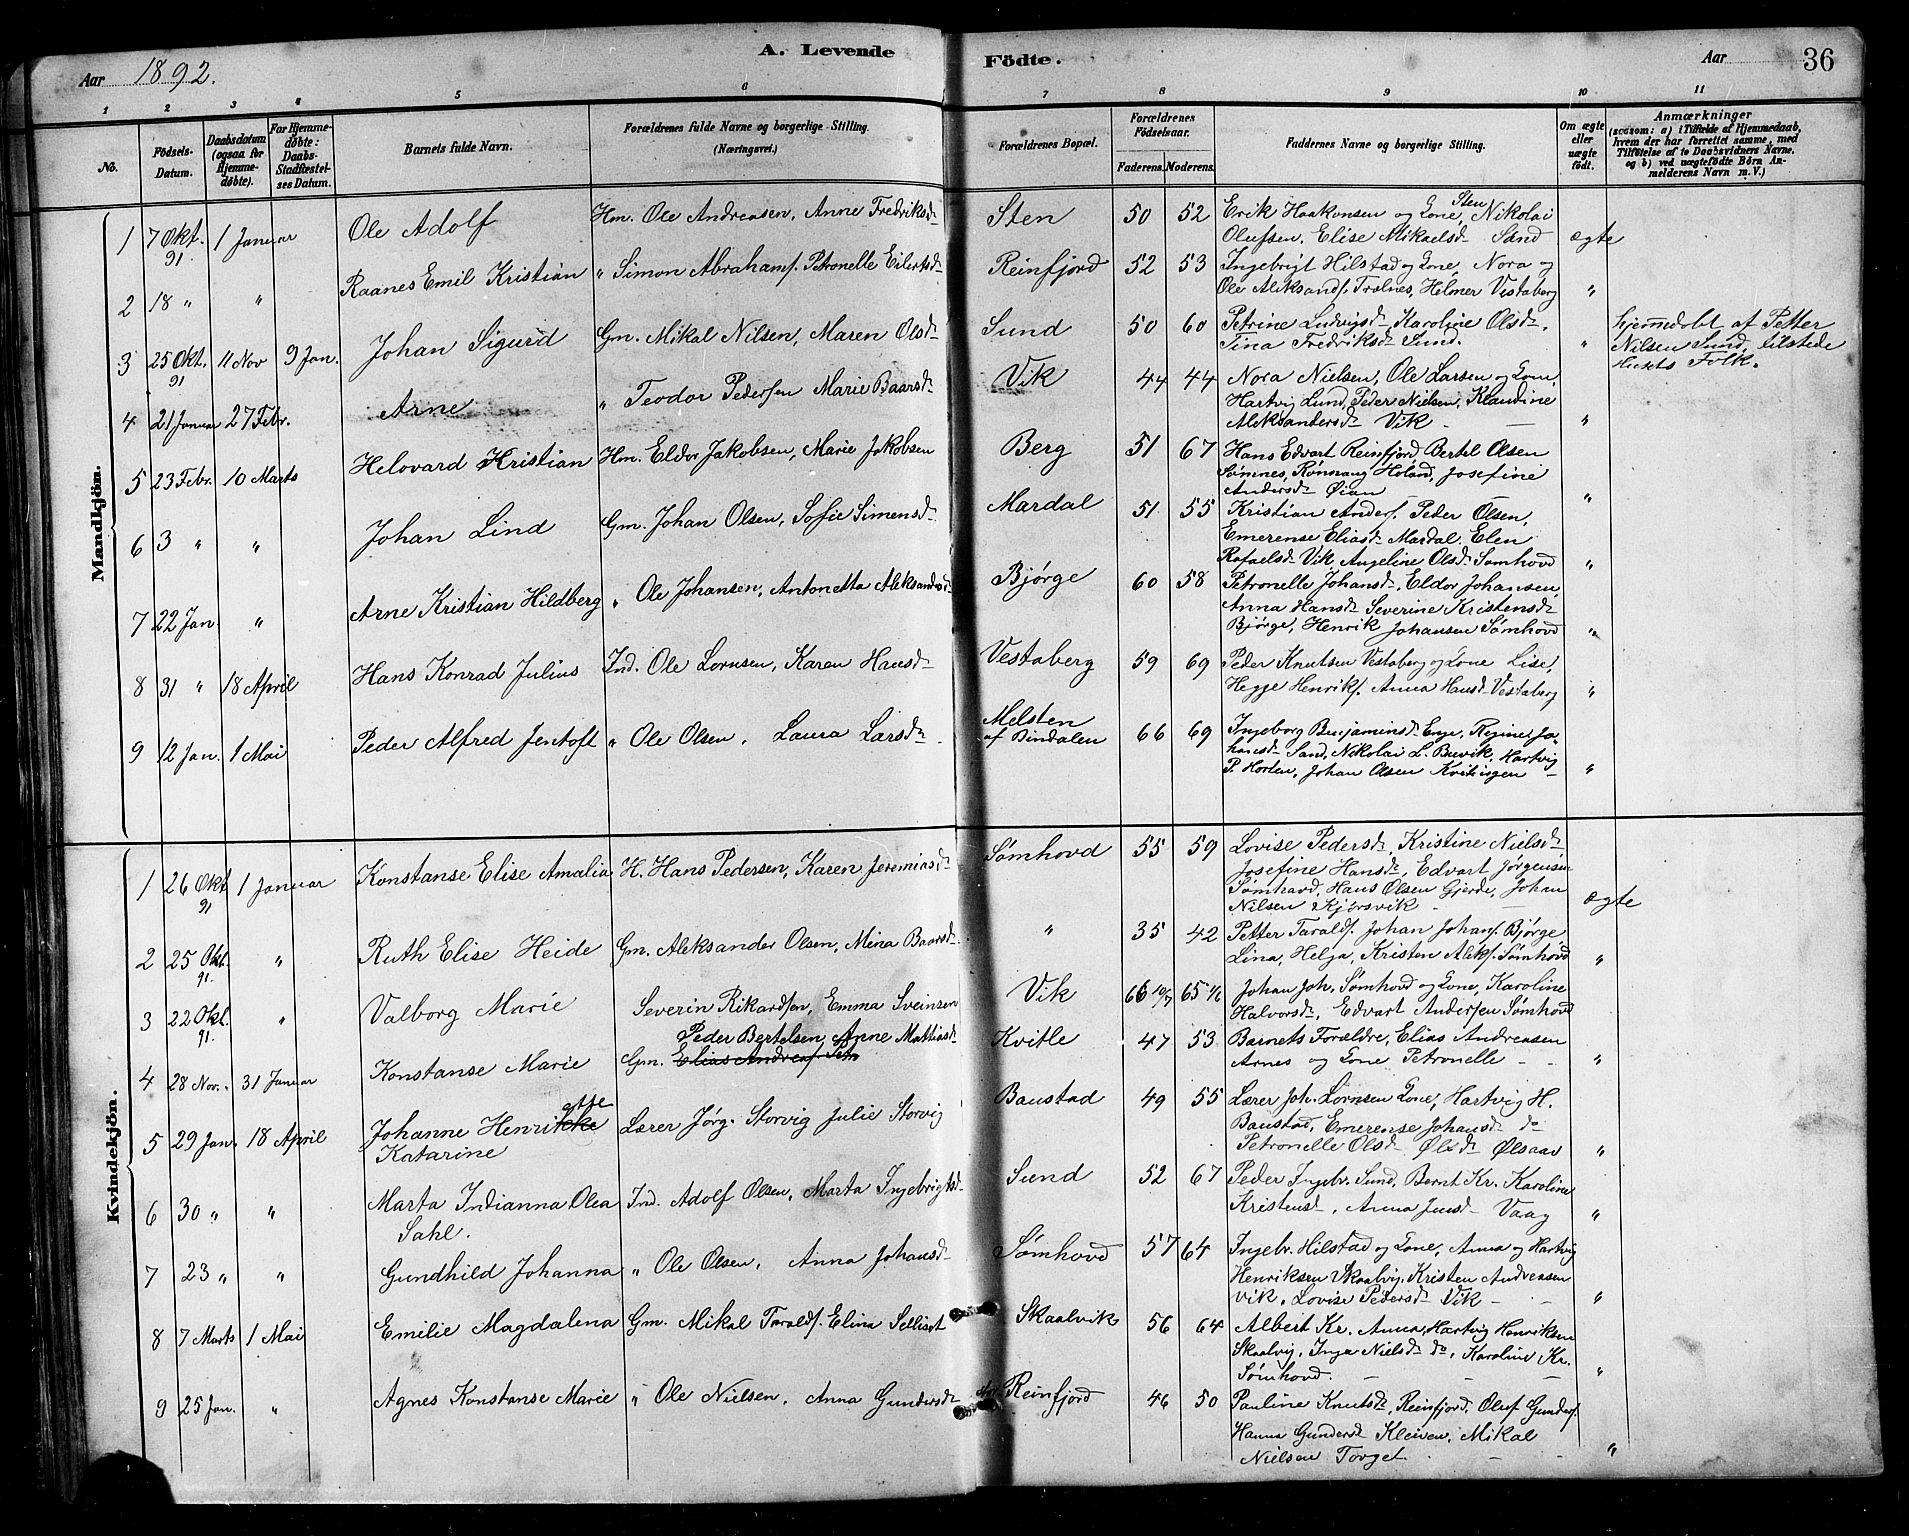 Aar 1892.
A. Levende Födte.
Aar
36
1 2 3 4 5 6 7 8 9 10 11
No.
Födsels-Datum.
Daabsdatum (ogsaa for Hjemmedöbte).
For Hjemmedöbte: Daabs-Stadfestelses Datum.
Barnets fulde Navn.
Forældrenes fulde Navne og borgerlige Stilling. (Næringsvei.)
Forældrenes Bopæl.
Forældrenes Födselsaar. Faderens. Moderens.
Faddernes Navne og borgerlige Stilling.
Om ægte eller uægte født.
Anmærkninger (saasom: a) i Tilfælde af Hjemmedaab, hvem der har forrettet samme, med Tilföielse af to Daabsvidners Navne, og b) ved uægtefödte Börn Anmelderens Navn m. V.)
Mandkjön.
1 7 Okt. 91 1 Januar Ole Adolf Hm. Ole Andreasen, Anne Fredriksd. Sten 50 52 Erik Haakonsen og Kone, Sten, Nikolai
Olufsen, Elise Mikaelsd. Sand ægte
2 18 " " Raanes Emil Kristian " Simon Abrahams. Petronelle Eilertsd. Reinfjord 52 53 Ingebrigt Hilstad og Kone, Nora og
Ole Aleksands. Trælnes, Helmer Vestaberg "
3 25 Okt. 91 11 Nov 9 Jan. Johan Sigurd Gm. Mikal Nilsen, Maren Olsd. Sund 50 60 Petrine Ludvigsd. Karoline Olsd.
Tina Fredriksd. Sund. " hjemmedøbt af Petter
Nilsen Sund, tilstede
Husets Folk.
4 21 Januar 27 Febr. Arne " Teodor Pedersen Marie Baarsd. Vik 44 44 Nora Nielsen, Ole Larsen og Kone,
Hartvig Lund, Peder Nielsen, Klaudine
Aleksandersd. Vik. "
5 23 Febr. 10 Marts Helovard Kristian Hm. Eldor Jakobsen, Marie Jakobsen Berg 51 67 Hans Edvart Reinfjord Bertel Olsen
Sømnes, Rønnaug Holand, Josefine
Andersd. Øian "
6 3 " " Johan Lind Gm. Johan Olsen, Sofie Simensd. Mardal 51 55 Kristian Anders. Peder Olsen,
Emerense Eliasd. Mardal. Elen
Rafaelsd. Vik Angeline Olsd. Sømhovd "
7 22 Jan " Arne Kristian Hildberg " Ole Johansen, Antonetta Aleksandersd. Bjørge 60 58 Petronelle Johansd. Eldor Johansen,
Anna Hansd. Severine Kristensd.
Bjørge, Henrik Johansen Sømhovd "
8 31 " 18 April Hans Konrad Julius Ind. Ole Lornsen, Karen Hansd. Vestaberg 59 69 Peder Knutsen Vestaberg og Kone Lise,
Hegge Henriks. Anna Hansd. Vestaberg "
9 12 Jan. 1 Mai Peder Alfred Jentoft " Ole Olsen. Laura Larsd. Melsten
af Bindalen 66 69 Ingeborg Benjaminsd. Enge, Regine Jo-
hansd. Sand, Nikolai L. Buvik, Hartvig
P. Horten, Johan Olsen "
Kvindekjön.
1 26 Okt 91 1 Januar Konstanse Elise Amalia H. Hans Pedersen, Karen Jeremiasd. Sømhovd 55 59 Lovise Pedersd. Kristine Nielsd.
Josefine Hansd. Edvart Jørgensen
Sømhovd, Hans Olsen Gjerde, Johan
Nilsen Kjørsvik ægte
2 25 Okt. 91. " Ruth Elise Heide Gm. Aleksander Olsen, Mina Baarsd. " 35 42 Petter Taralds. Johan Johans. Bjørge
Lina, Helga, Kristen Aleks. Sømhovd "
3 22 Okt. 91. " Valborg Marie Severin Rikardsen, Emma Sveinsen Vik 66 10/7 65 1/6 Johan Joh. Sømhovd og Kone, Karoline
Halvorsd. Edvart Andersen Sømhovd
4 28 Nov. 31 Januar Konstanse Marie Peder Bertelsen, Anne Mattiasd.
Gm. Elias Andreas. Kvitle 47 53 Barnets Forældre, Elias Andreasen
Arnes og Kone Petronelle "
5 29 Jan. 18 April Johanne Henrikke ette
Katarine Lærer Jørg. Storvig Julie Storvig Baustad 49 55 Lærer Joh. Lornsen Kone, Hartvig H.
Baustad, Emerense Johansd. do
Petronelle Olsd. Olsd. Ølsaav "
6 30 " " Marta Indianna Olea
Sahl. Ind. Adolf Olsen, Marta Ingebrigtsd. Sund 52 67 Peder Ingebr. Sund, Bernt Kr. Karoline
Kristensd. Anna Jensd. Vaag "
7 23 " " Gundhild Johanna " Ole Olsen, Anna Johansd. Sømhovd 57 64 Ingebr. Hilstad og Kone, Anna og Hartvig
Henriksen Skaalvig, Kristen Andreasen
Vik, Lovise Pedersd. Vik "
8 7 Marts 1 Mai Emilie Magdalena Gm. Mikal Taralds. Elina Selliset Skaalvik 56 64 Albert Kr. Anna, Hartvig Henriksen
Skaalvig, Inga Nielsd. do, Karoline Kr.
Sømhovd. "
9 25 Jan. " Agnes Konstanse Marie " Ole Nielsen, Anna Gundersd. Reinfjord 46 50 Pauline Knutsd. Reinfjord. Oluf Gunders.
Hanna Gundersd. Kleiven, Mikal
Nielsen Torget. "